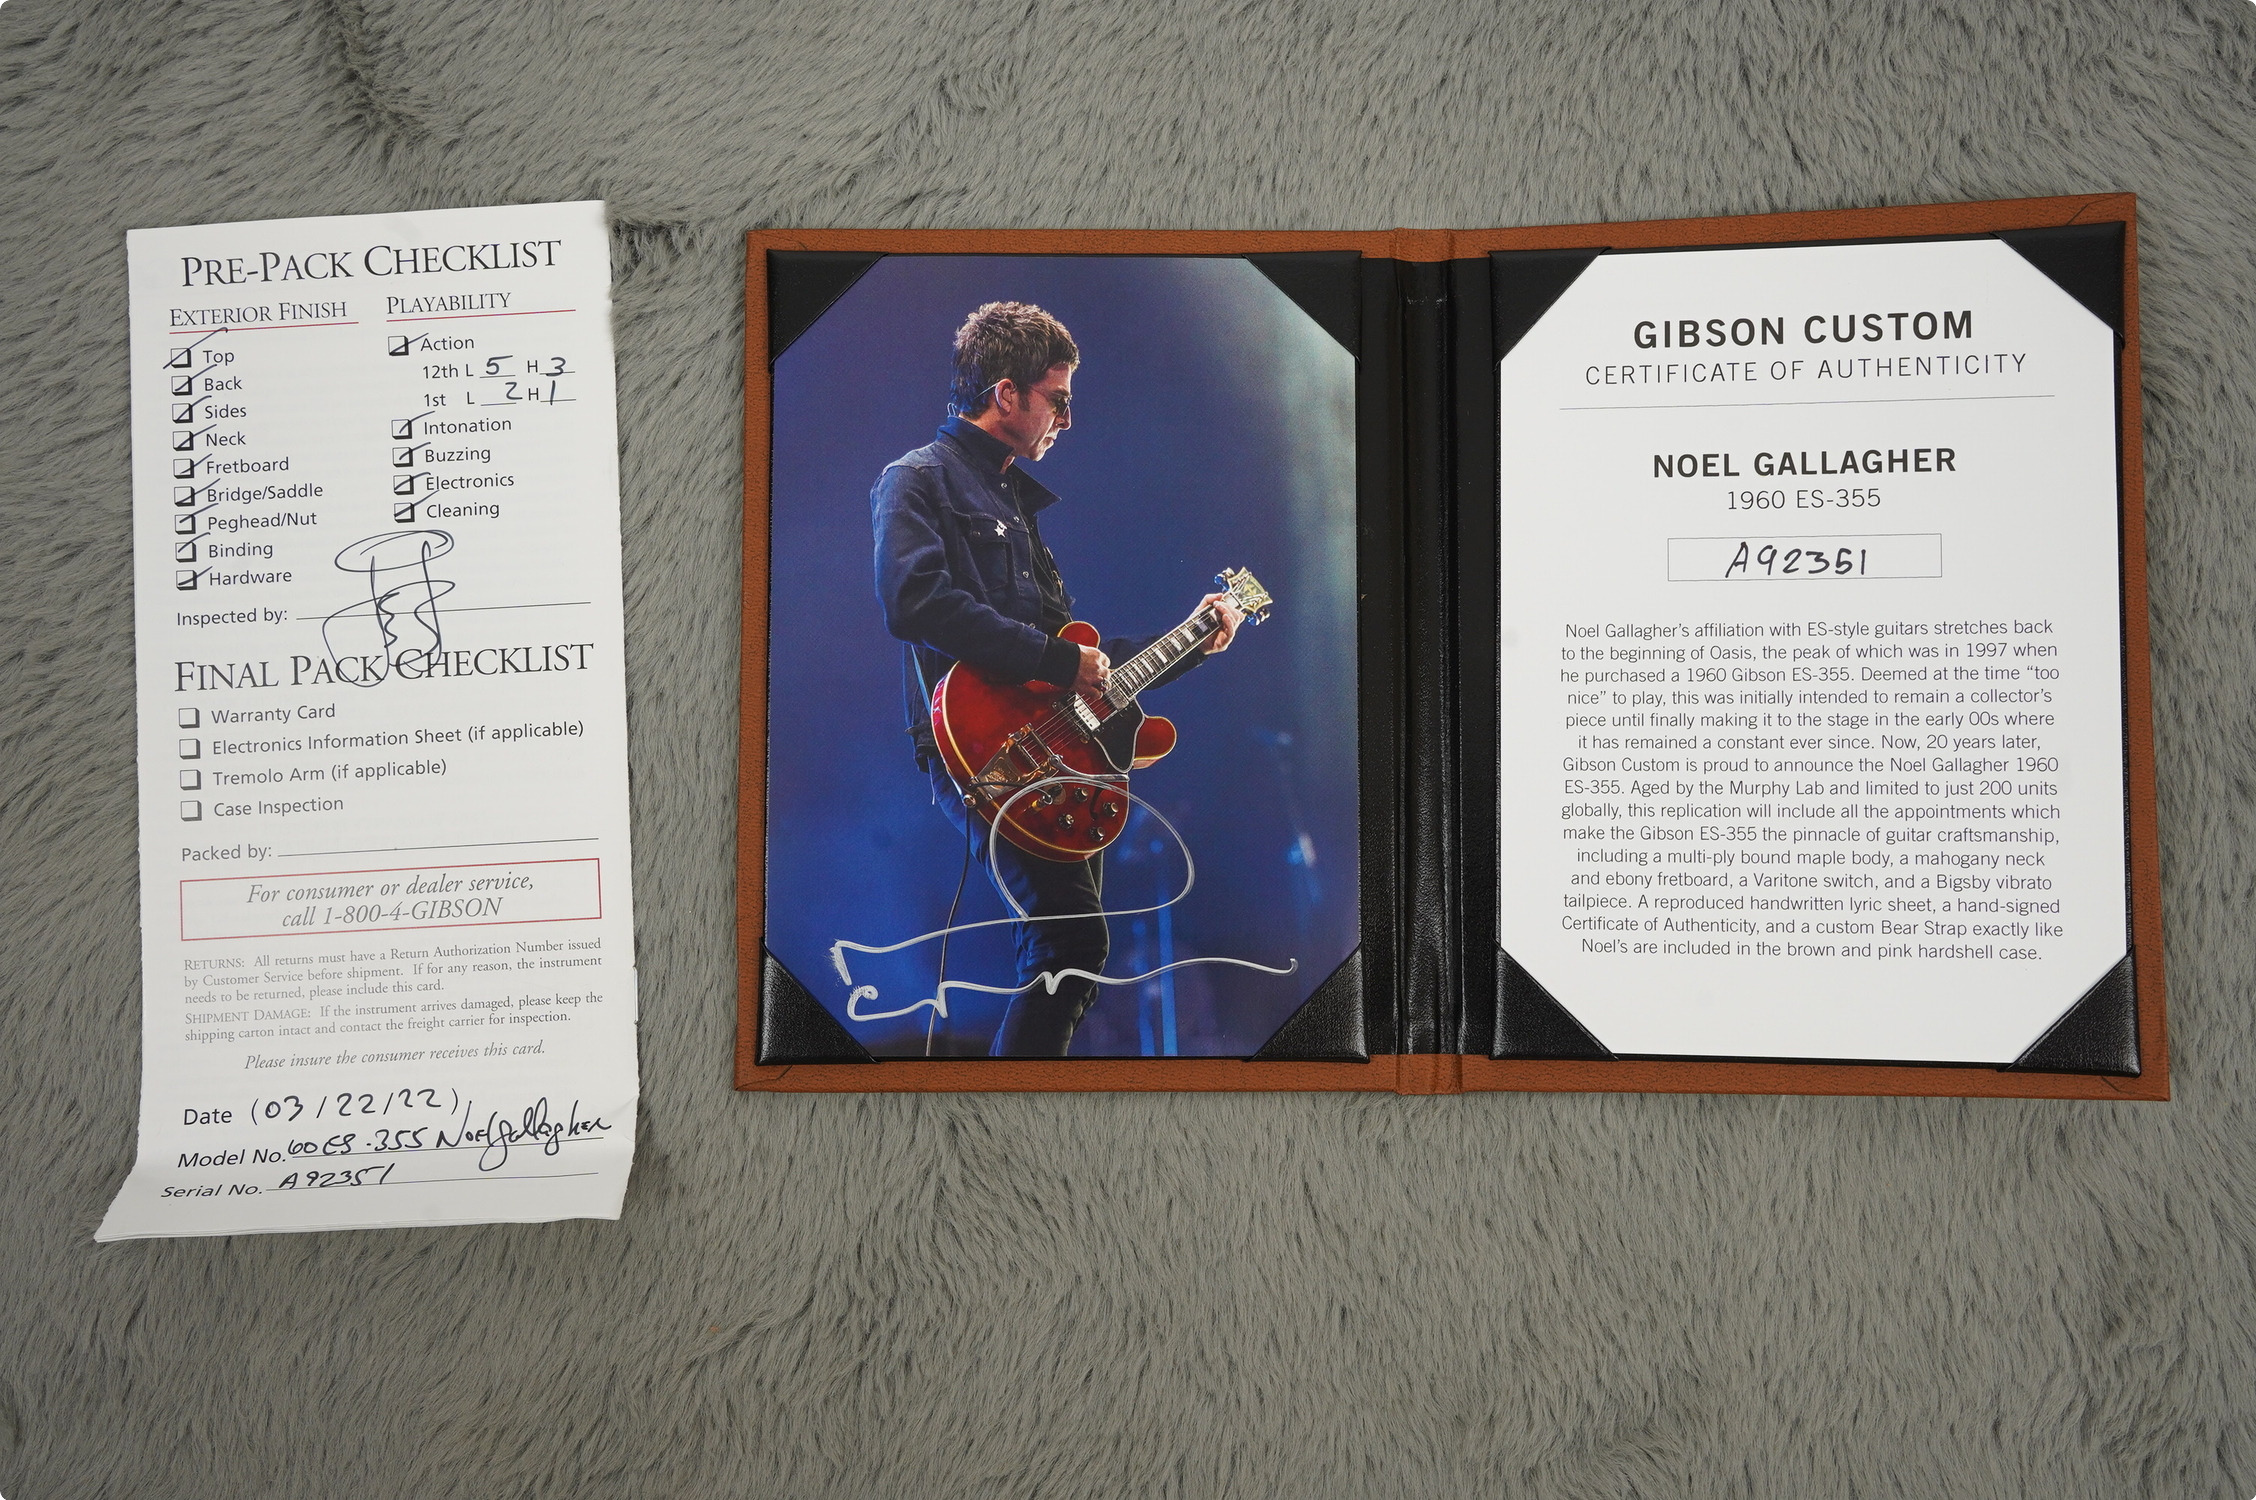 PRE-PACK CHECKLIST
EXTERIOR FINISH
Top
Back
Sides
Neck
Fretboard
Bridge/Saddle
Peghead/Nut
Binding
Hardware
PLAYABILITY
Action
12th L 5 H 3
1st L 2 H 1
Intonation
Buzzing
Electronics
Cleaning
Inspected by:
FINAL PACK CHECKLIST
Warranty Card
Electronics Information Sheet (if applicable)
Tremolo Arm (if applicable)
Case Inspection
Packed by:
For consumer or dealer service,
call 1-800-4-GIBSON
RETURNS: All returns must have a Return Authorization Number issued
by Customer Service before shipment. If for any reason, the instrument
needs to be returned, please include this card.
SHIPMENT DAMAGE: If the instrument arrives damaged, please keep the
shipping carton intact and contact the freight carrier for inspection.
Please insure the consumer receives this card.
Date (03/22/22)
Model No. 60 ES-355 Noel Gallagher
Serial No. A92351
GIBSON CUSTOM
CERTIFICATE OF AUTHENTICITY
NOEL GALLAGHER
1960 ES-355
A92351
Noel Gallagher's affiliation with ES-style guitars stretches back
to the beginning of Oasis, the peak of which was in 1997 when
he purchased a 1960 Gibson ES-355. Deemed at the time “too
nice” to play, this was initially intended to remain a collector's
piece until finally making it to the stage in the early 00s where
it has remained a constant ever since. Now, 20 years later,
Gibson Custom is proud to announce the Noel Gallagher 1960
ES-355. Aged by the Murphy Lab and limited to just 200 units
globally, this replication will include all the appointments which
make the Gibson ES-355 the pinnacle of guitar craftsmanship,
including a multi-ply bound maple body, a mahogany neck
and ebony fretboard, a Varitone switch, and a Bigsby vibrato
tailpiece. A reproduced handwritten lyric sheet, a hand-signed
Certificate of Authenticity, and a custom Bear Strap exactly like
Noel's are included in the brown and pink hardshell case.